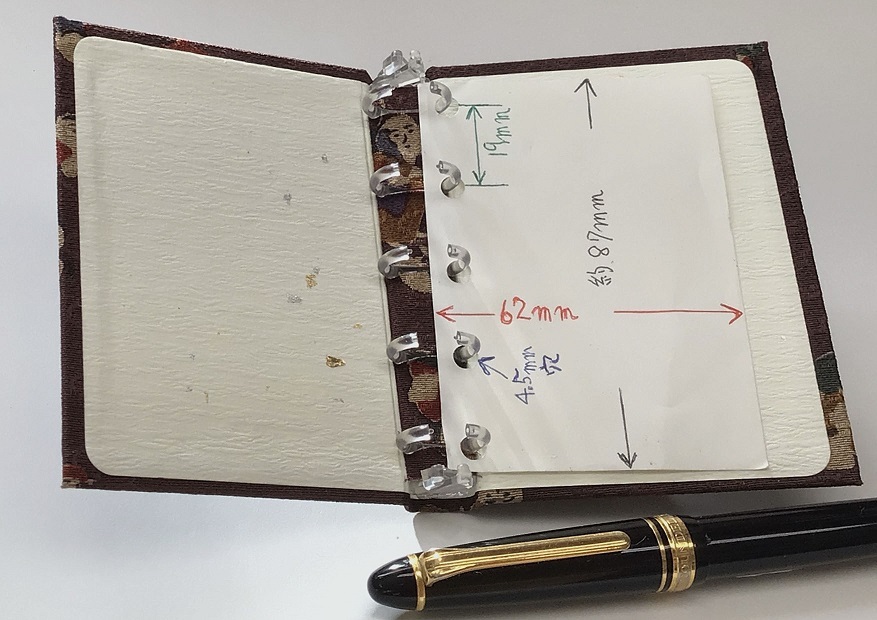 19mm
約87mm
62mm
4.5mm
穴